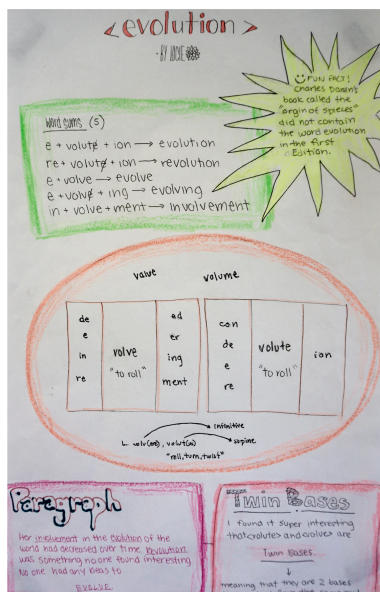 <evolution>
- BY JACKIE
☺ FUN FACT!
Charles Darwin's
book called the
"orgin of spieces"
did not contain
the word evolution
in the first
Edition.
Word sums (5)
e + volute + ion → evolution
re + volute + ion → revolution
e + volve → evolve
e + volve + ing → evolving
in + volve + ment → involvement
valve volume
de
e
in
re
volve
"to roll"
ed
er
ing
ment
con
de
e
re
volute
"to roll"
ion
infinitive
L. volv(ere), volut(us) supine
"roll, turn, twist"
Paragraph
Her involvement in the evolution of the
world had decreased over time. Revolution
was something no one found interesting
No one had any ideas to
EVOLVE
Twin Bases
I found it super interesting
that volutes and volves are
Twin Bases.
↓
meaning that they are 2 bases